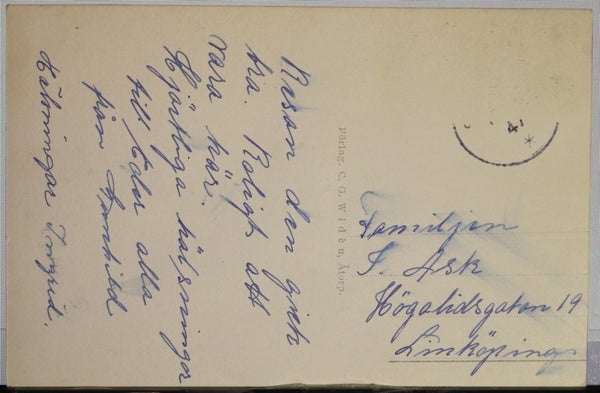 Resan den gick
bra. Roligt att
vara här.
Hjärtliga hälsningar
till Eder alla
från Gunhild
Hälsningar Ingrid.
Förlag. C. G. Widén, Åtorp.
Familjen
J. Ask
Högalidsgatan 19
Linköping